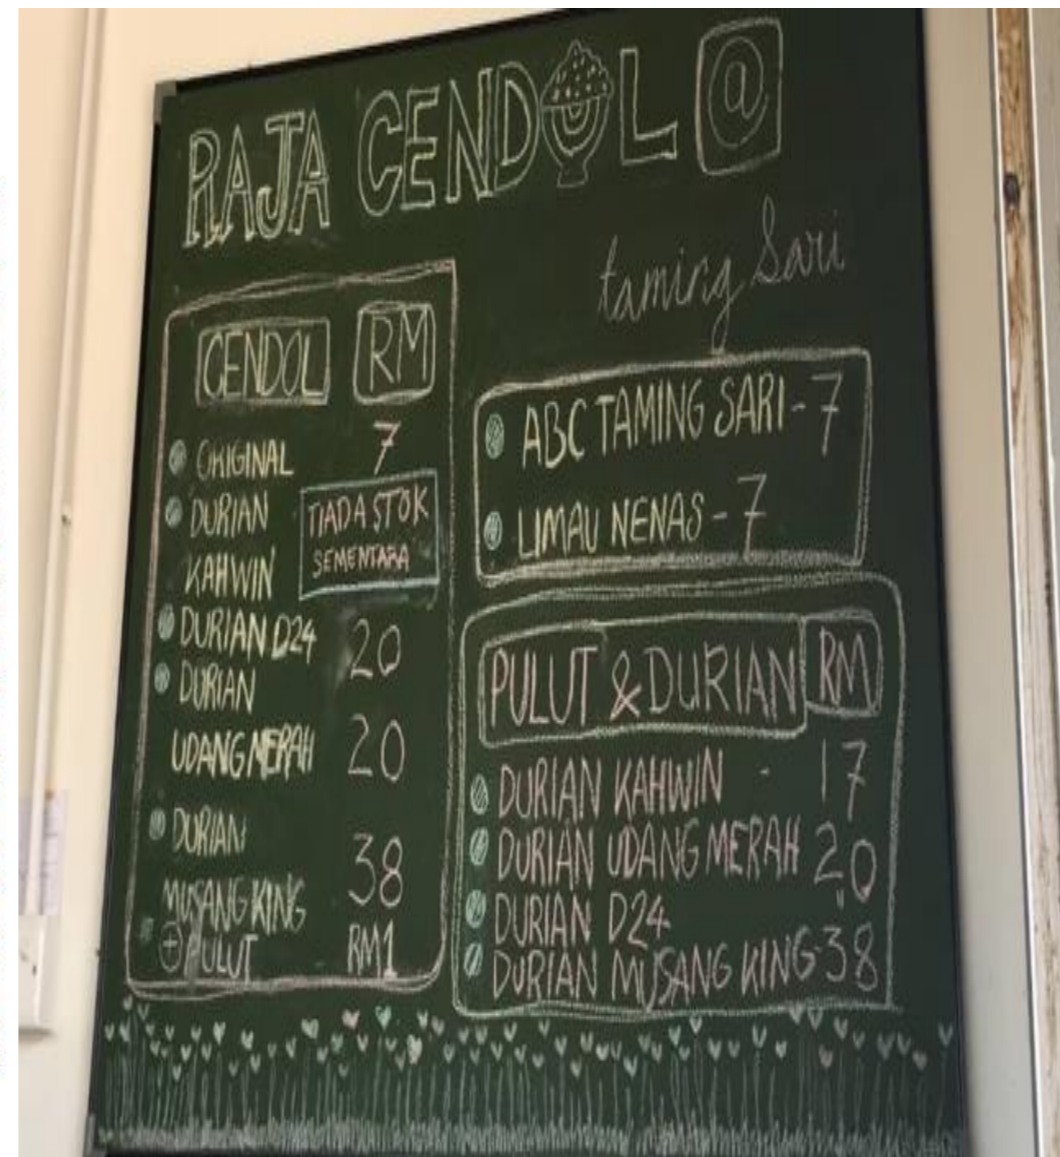 RAJA CENDOL @
taming Sari
CENDOL RM
ORIGINAL 7
DURIAN KAHWIN
TIADA STOK
SEMENTARA
DURIAN D24 20
DURIAN
UDANG MERAH 20
DURIAN
MUSANG KING 38
+ PULUT RM1
ABC TAMING SARI - 7
LIMAU NENAS - 7
PULUT & DURIAN RM
DURIAN KAHWIN - 17
DURIAN UDANG MERAH 20
DURIAN D24 "
DURIAN MUSANG KING - 38